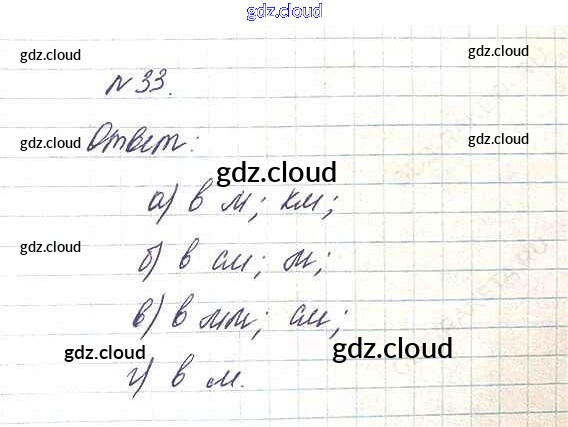 gdz.cloud
gdz.cloud
gdz.cloud
N 33.
gdz.cloud
Ответ:
gdz.cloud
gdz.cloud
а) в м; км;
gdz.cloud
б) в см; м;
gdz.cloud
в) в мм; см;
gdz.cloud
gdz.cloud
г) в м.